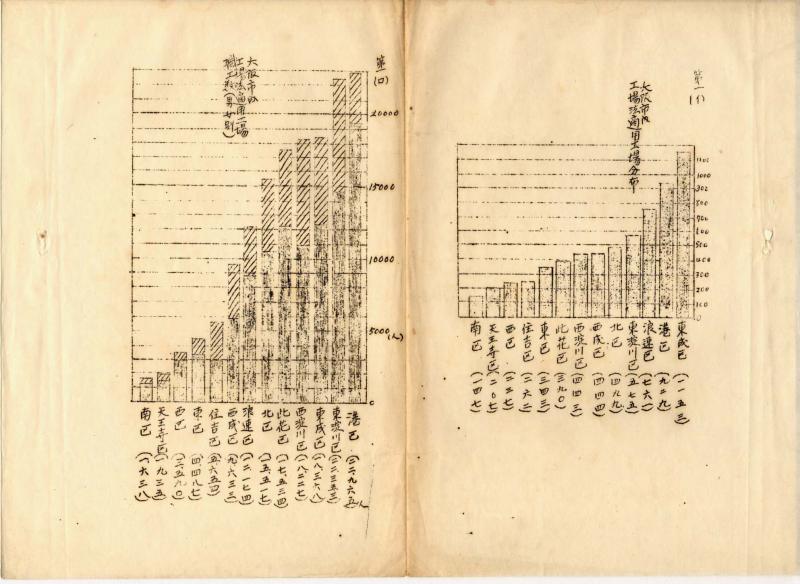 第一(イ)
大阪市内
工場法適用工場分布
1100
1000
900
800
700
600
500
400
300
200
100
0
東成区(一一五三)
港区(九二九)
浪速区(七六一)
東淀川区(五七五)
北区(四九九)
西成区(四四四)
西淀川区(四四三)
此花区(三九〇)
東区(三四三)
住吉区(二六二)
西区(二二七)
天王寺区(二〇七)
南区(一四七)
第一(ロ)
大阪市内
工場法適用工場
職工数(男女別)
20000
15000
10000
5000(人)
0
港区(二二、九六五)人
東淀川区(二二、三五三)
東成区(一八、三六八)
西淀川区(一八、二二七)
此花区(一七、五三四)
北区(一五、五一七)
浪速区(一二、一七四)
西成区(九、六三三)
住吉区(五、六五四)
東区(四、四八七)
西区(三、五九〇)
天王寺区(一、九三五)
南区(一、六三八)